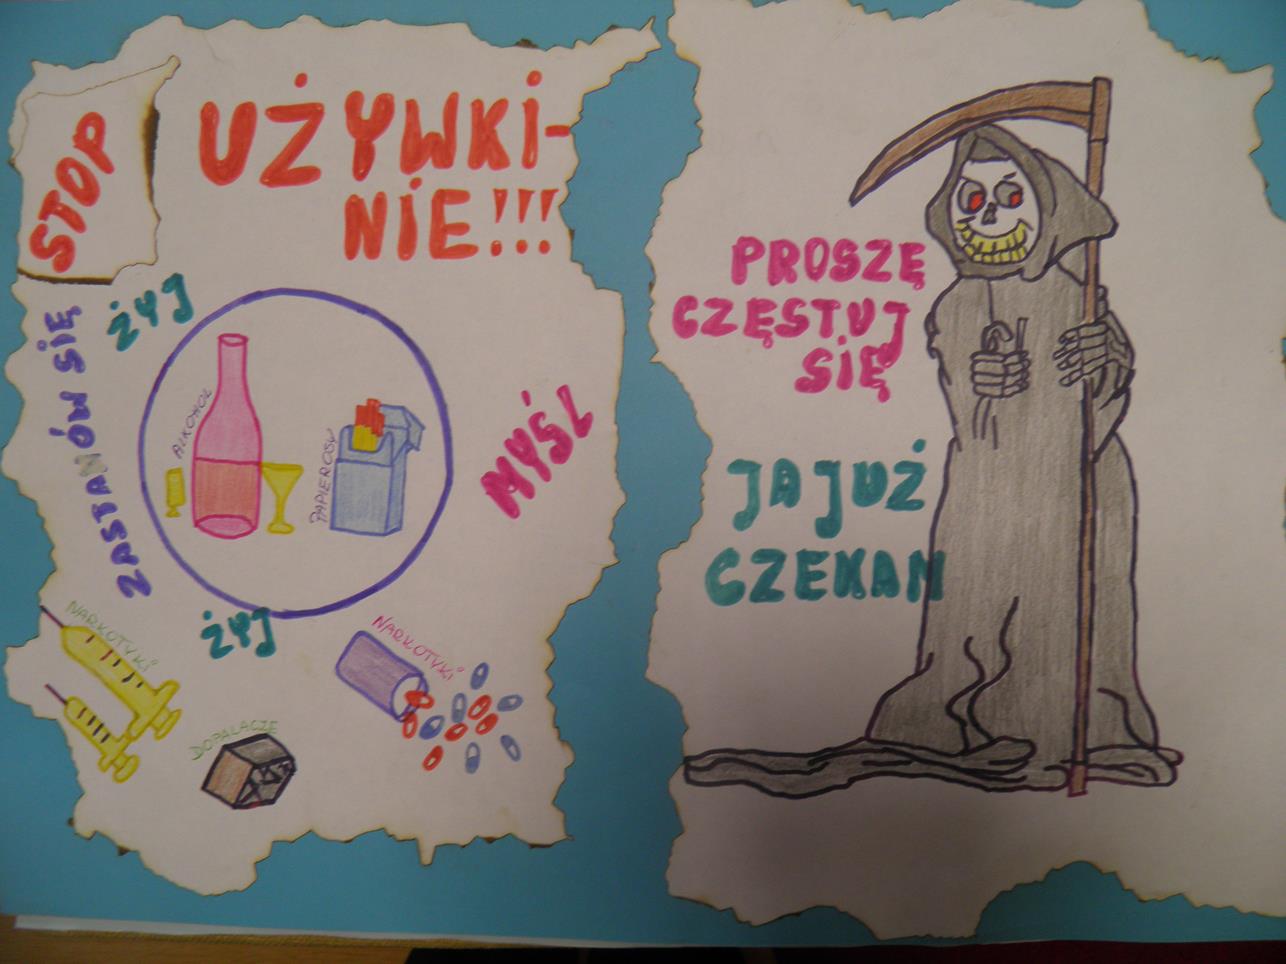 STOP
UŻYWKI-
NIE!!!
ZASTANÓW SIĘ
ŻYJ
ALKOHOL
PAPIEROSY
MYŚL
ŻYJ
NARKOTYKI
NARKOTYKI
DOPALACZE
PROSZĘ
CZĘSTUJ
SIĘ
JA JUŻ
CZEKAM